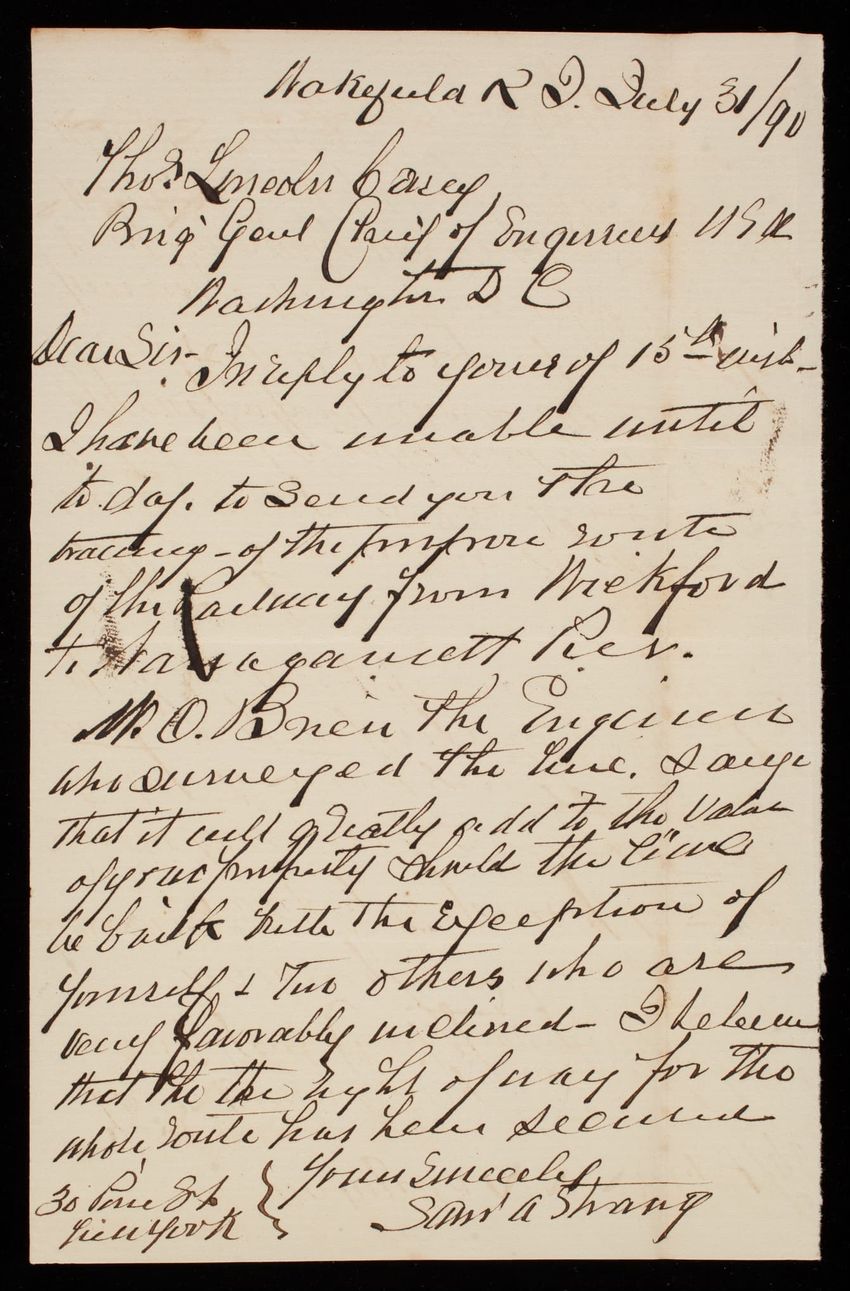 Wakefield R I. July 31/90
Thos. Lincoln Casey
Brig Genl Chief of Engineers USA
Washington D C
Dear Sir- In reply to yours of 15th inst-
I have been unable until
to day. to send you the
tracing - of the route
of the Railway from Wickford
to Narragansett Pier.
Mr. O. Brien the Engineer
who surveyed the line. says
that it will greatly add to the value
of your property should the line
be built With the exception of
yourself & two others who are
very favorably inclined - I believe
that the the right of way for the
whole route has been secured
Yours Sincerely
Saml A Strang
30 Pine St
New York